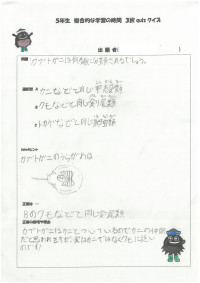 5年生 総合的な学習の時間 3択quizクイズ
出題者( )
問題
カブトガニは何の仲間でしょう。
選択肢 A
カニなどと同じ甲殻類
Bクモなどと同じ鋏角類
トカゲなどと同じ爬虫類
カブトガニのうらがわは
正解は…
Bのクモなどと同じ鋏角類
カブトガニはカニとついているのでカニの仲間
だと思われるが実はカニではなくクモに近い
のです!